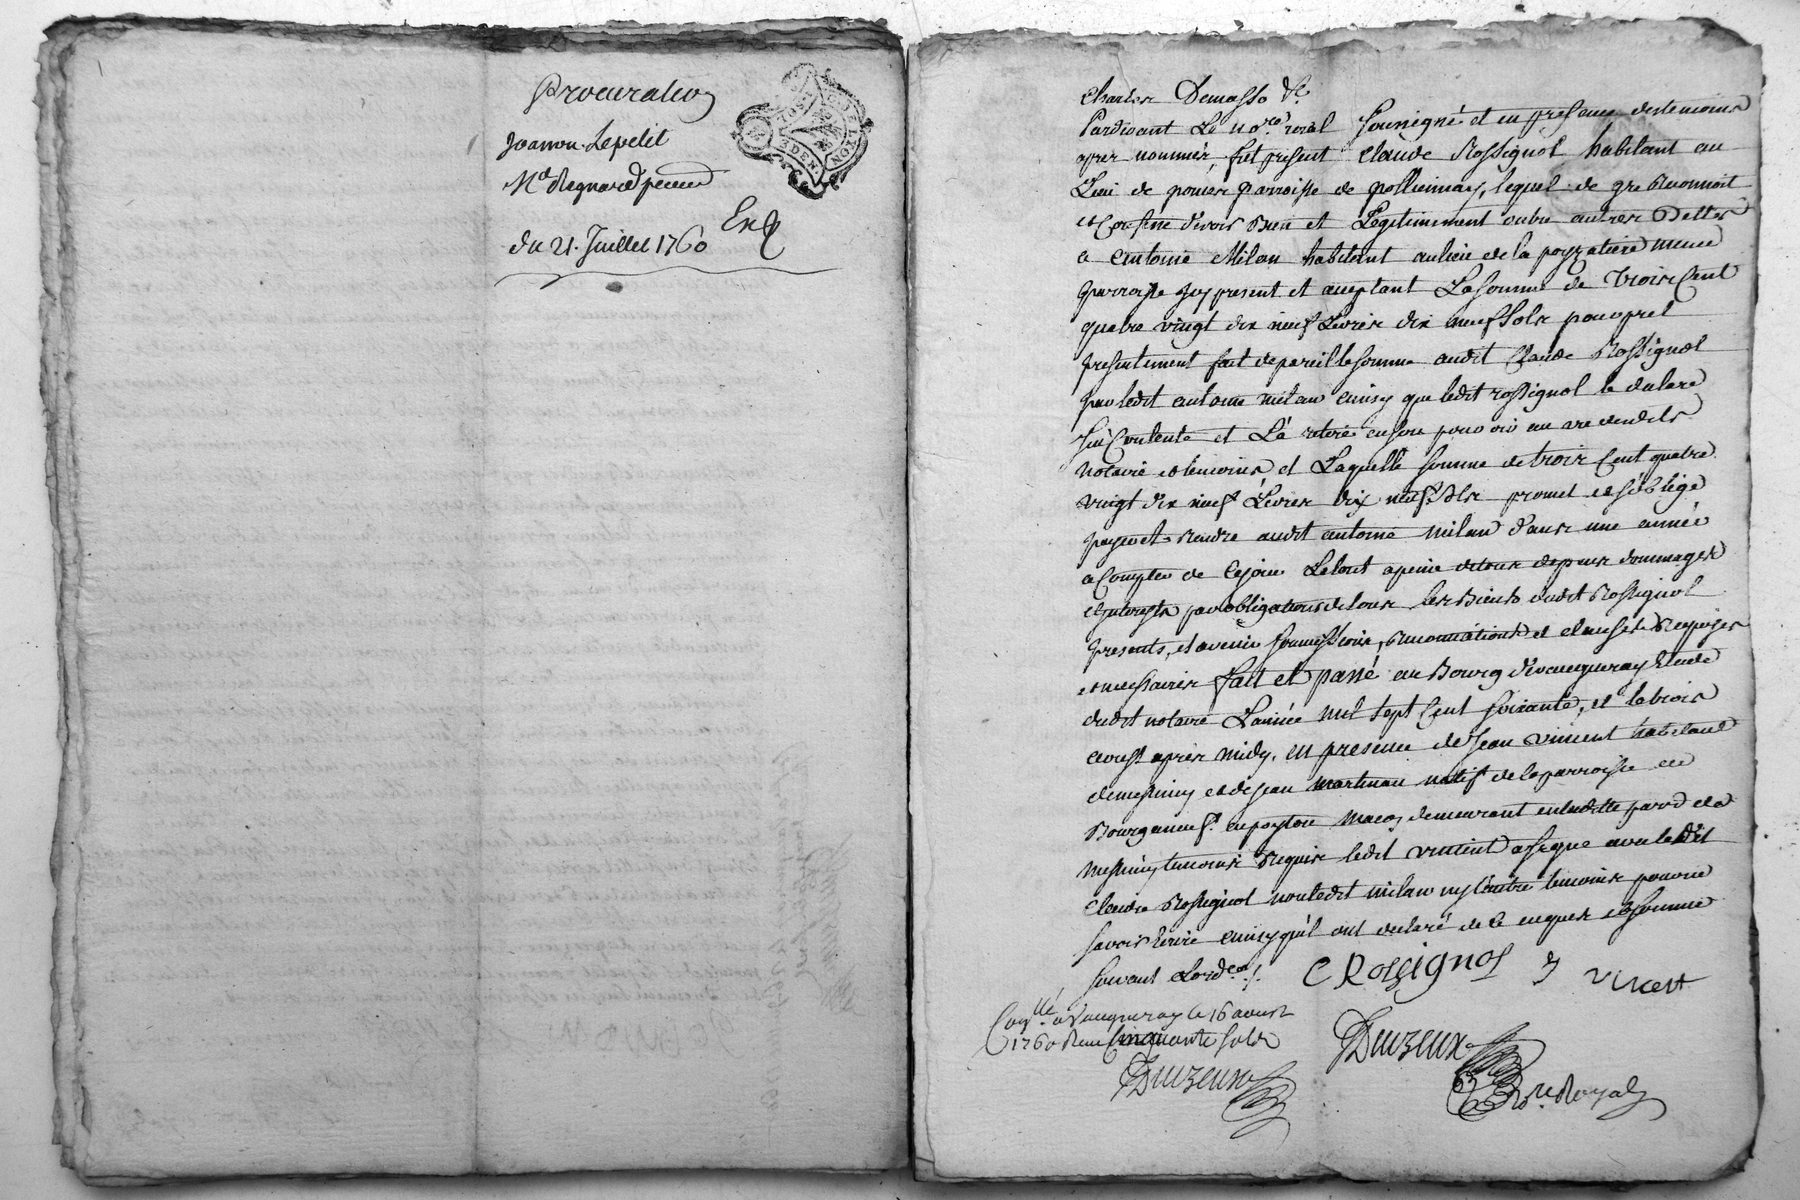 Procuration
Joanon Lepetit
Md Regnard
Exp
du 21. Juillet 1760
GEN. DE LYON
Charles Demasso &c.
Pardevant Le nore roial soussigné et en presence des temoins
apres nommés, fut present Claude Rossignol habitant au
Lieu de parroisse de pollionnay, lequel de gré reconnoit
et Confesse devoir Bien et Legitimement outre autres Dettes
a Antoine Milan habitant au lieu de la poyzatiere meme
parroisse icy present et acceptant La somme de Trois Cent
quatre vingt dix neuf Livres dix neuf sols pour pret
presentement fait de pareille somme audit Claude Rossignol
par ledit antoine milan ainsy que ledit rossignol le declare
s'en Contente et L'a retiré en son pouvoir au vu desdits
notaire et temoins et Laquelle somme de trois Cent quatre
vingt dix neuf Livres dix neuf sols promet et s'oblige
payer et rendre audit antoine milan dans une année
a Compter de Cejour Le tout a peine de tous depens dommages
et interests par obligations de tous ses Biens dudit Rossignol
presents, et avenir soumissions, renonciations et clauses requises
et necessaires fait et passé au Bourg de vaugneray Etude
dudit notaire L'année mil sept Cent soixante, et le trois
aoust après midy, en presence de Jean vincent habitant
de messimy et de jean martinau natif de la parroisse de
Bourganeuf en poytou macon demeurant en ladite parroisse de
messimy temoins requis ledit vincent a signé avec ledit
Claude Rossignol non ledit milan ny l'autre temoins pour ne
savoir Ecrire ainsy qu'il ont declaré de ce enquis et sommé
suivant L'ordce /. C Rossignol J vincent
Conllé a Vaugneray le 16 aoust
1760 Recu Cinquante sols
Duzeux
Duzeux
Nore Royal